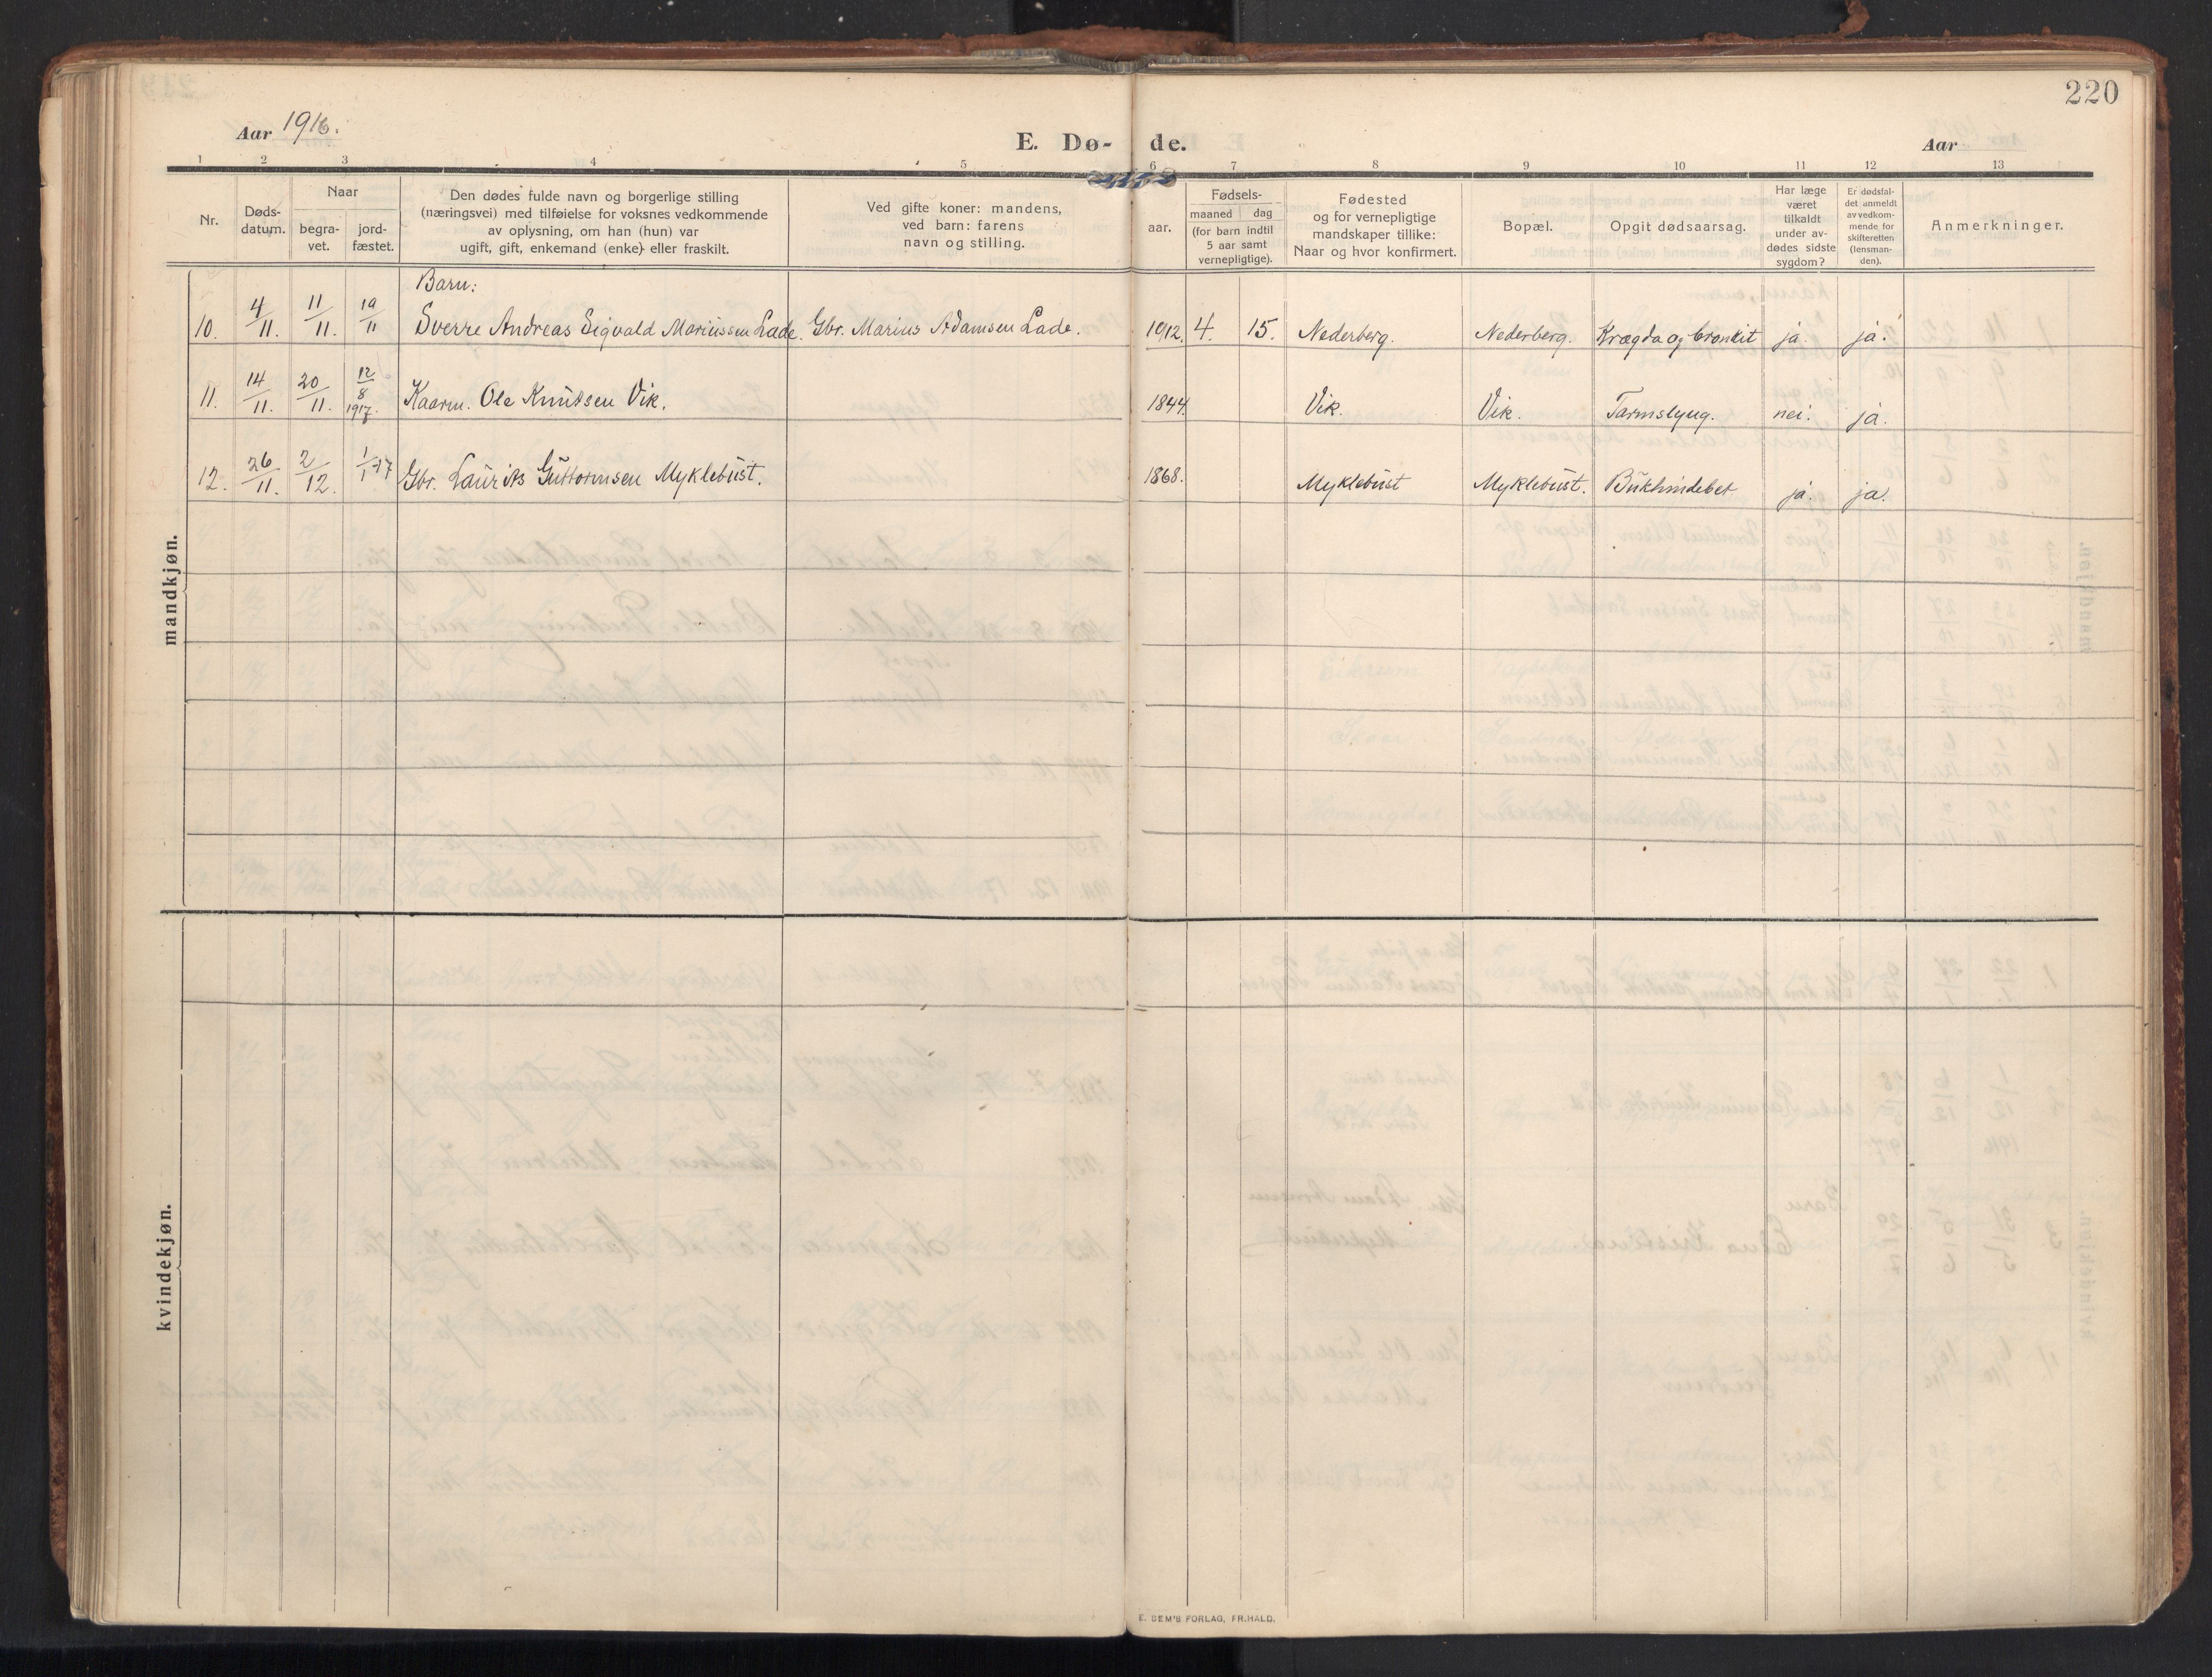 220
Aar 1916.
E. Dø- de.
Aar
1 2 3 4 5 6 7 8 9 10 11 12 13
Nr.
Døds-
datum.
Naar
begra-
vet.
jord-
fæstet.
Den dødes fulde navn og borgerlige stilling
(næringsvei) med tilføielse for voksnes vedkommende
av oplysning, om han (hun) var
ugift, gift, enkemand (enke) eller fraskilt.
Ved gifte koner: mandens,
ved barn: farens
navn og stilling.
aar.
Fødsels-
maaned dag
(for barn indtil
5 aar samt
vernepligtige).
Fødested
og for vernepligtige
mandskaper tillike:
Naar og hvor konfirmert.
Bopæl.
Opgit dødsaarsag.
Har læge
været
tilkaldt
under av-
dødes sidste
sygdom?
Er dødsfal-
det anmeldt
av vedkom-
mende for
skifteretten
(lensman-
den).
Anmerkninger.
mandkjøn.
Barn:
10. 4/11. 11/11. 19/11 Sverre Andreas Sigvald Mariussen Lade. Gbr. Marius Adamsen Lade. 1912. 4. 15. Nederberg. Nederberg. Krægda og bronkit ja. ja.
11. 14/11. 20/11. 12/8 1917. Kaarm. Ole Knutsen Vik. 1844. Vik. Vik. Tarmslyng. nei. ja.
12. 26/11. 2/12. 1/1-17 Gbr. Laurits Guttormsen Myklebust. 1868. Myklebust Myklebust. Bukhindebet. ja. ja.
kvindekjøn.
E. SEM'S FORLAG, FR. HALD.